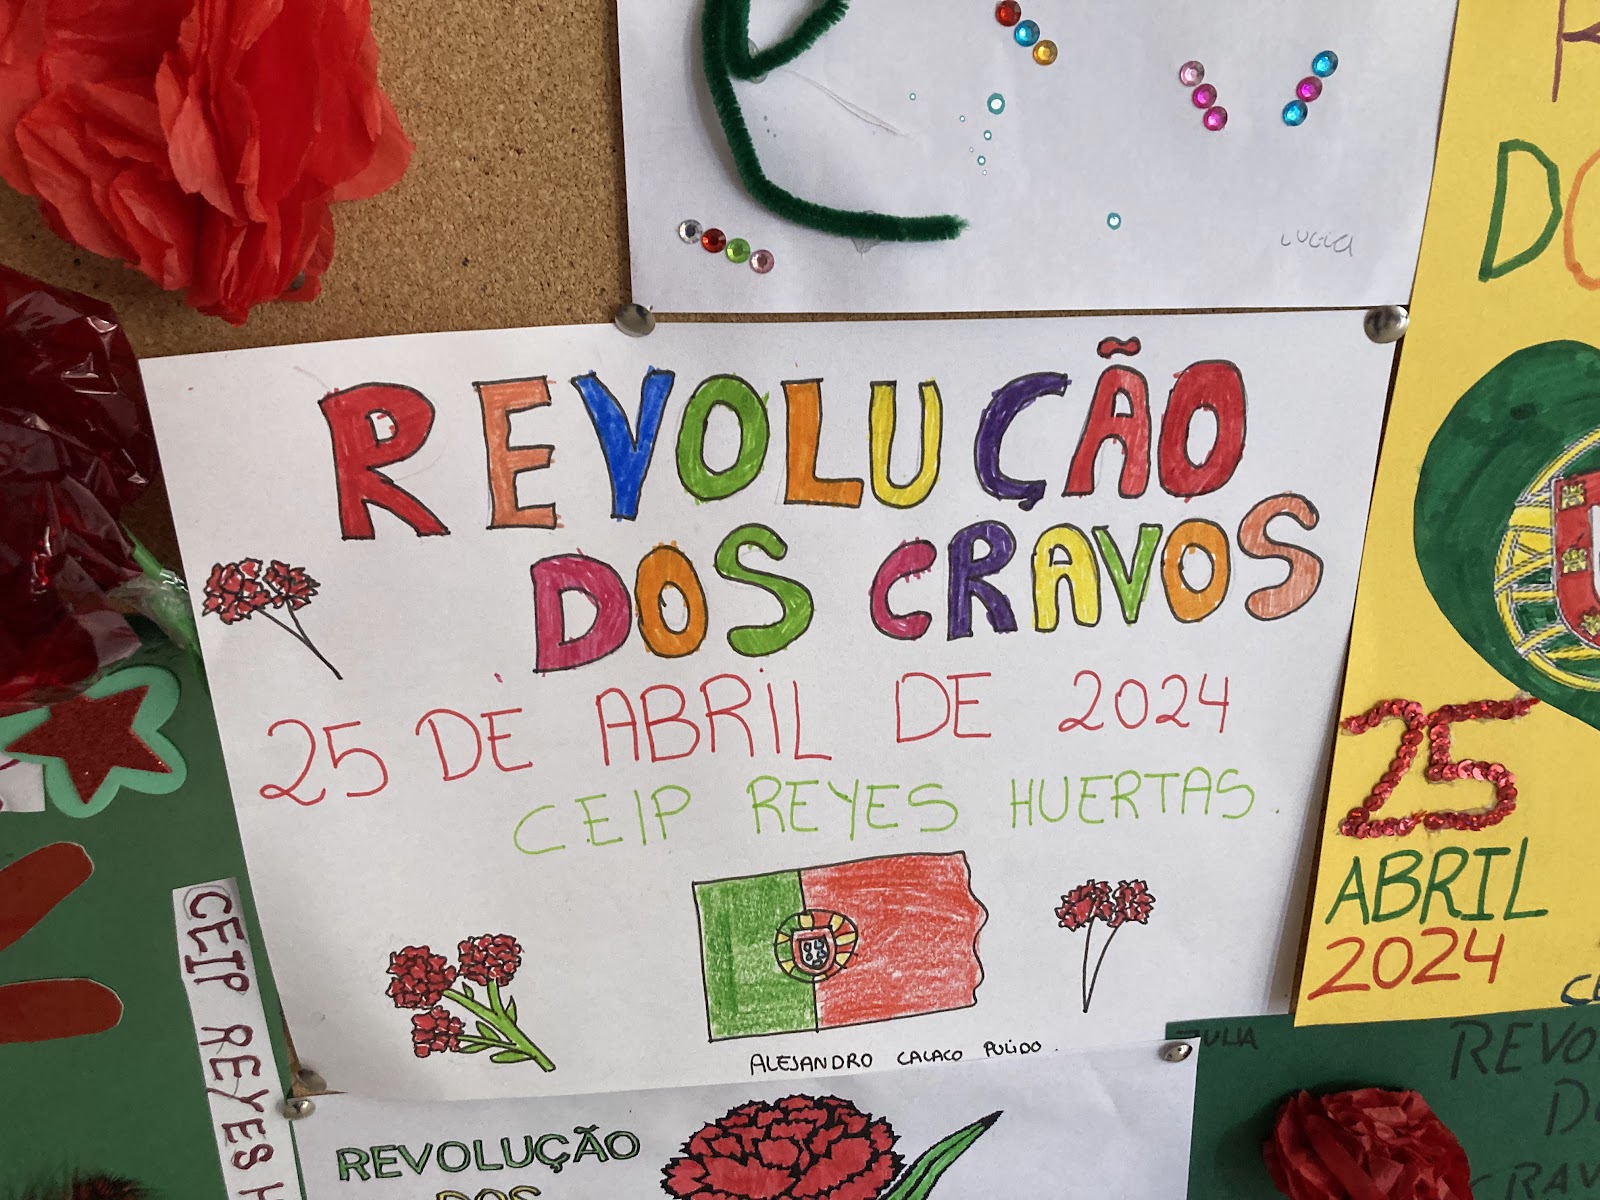 LUCIA
REVOLUÇÃO
DOS CRAVOS
25 DE ABRIL DE 2024
CEIP REYES HUERTAS.
ALEJANDRO CALACO PULIDO.
D
25
ABRIL
2024
CEIP REYES H
REVOLUÇÃO
DOS
JULIA
REVO
D
CRAV